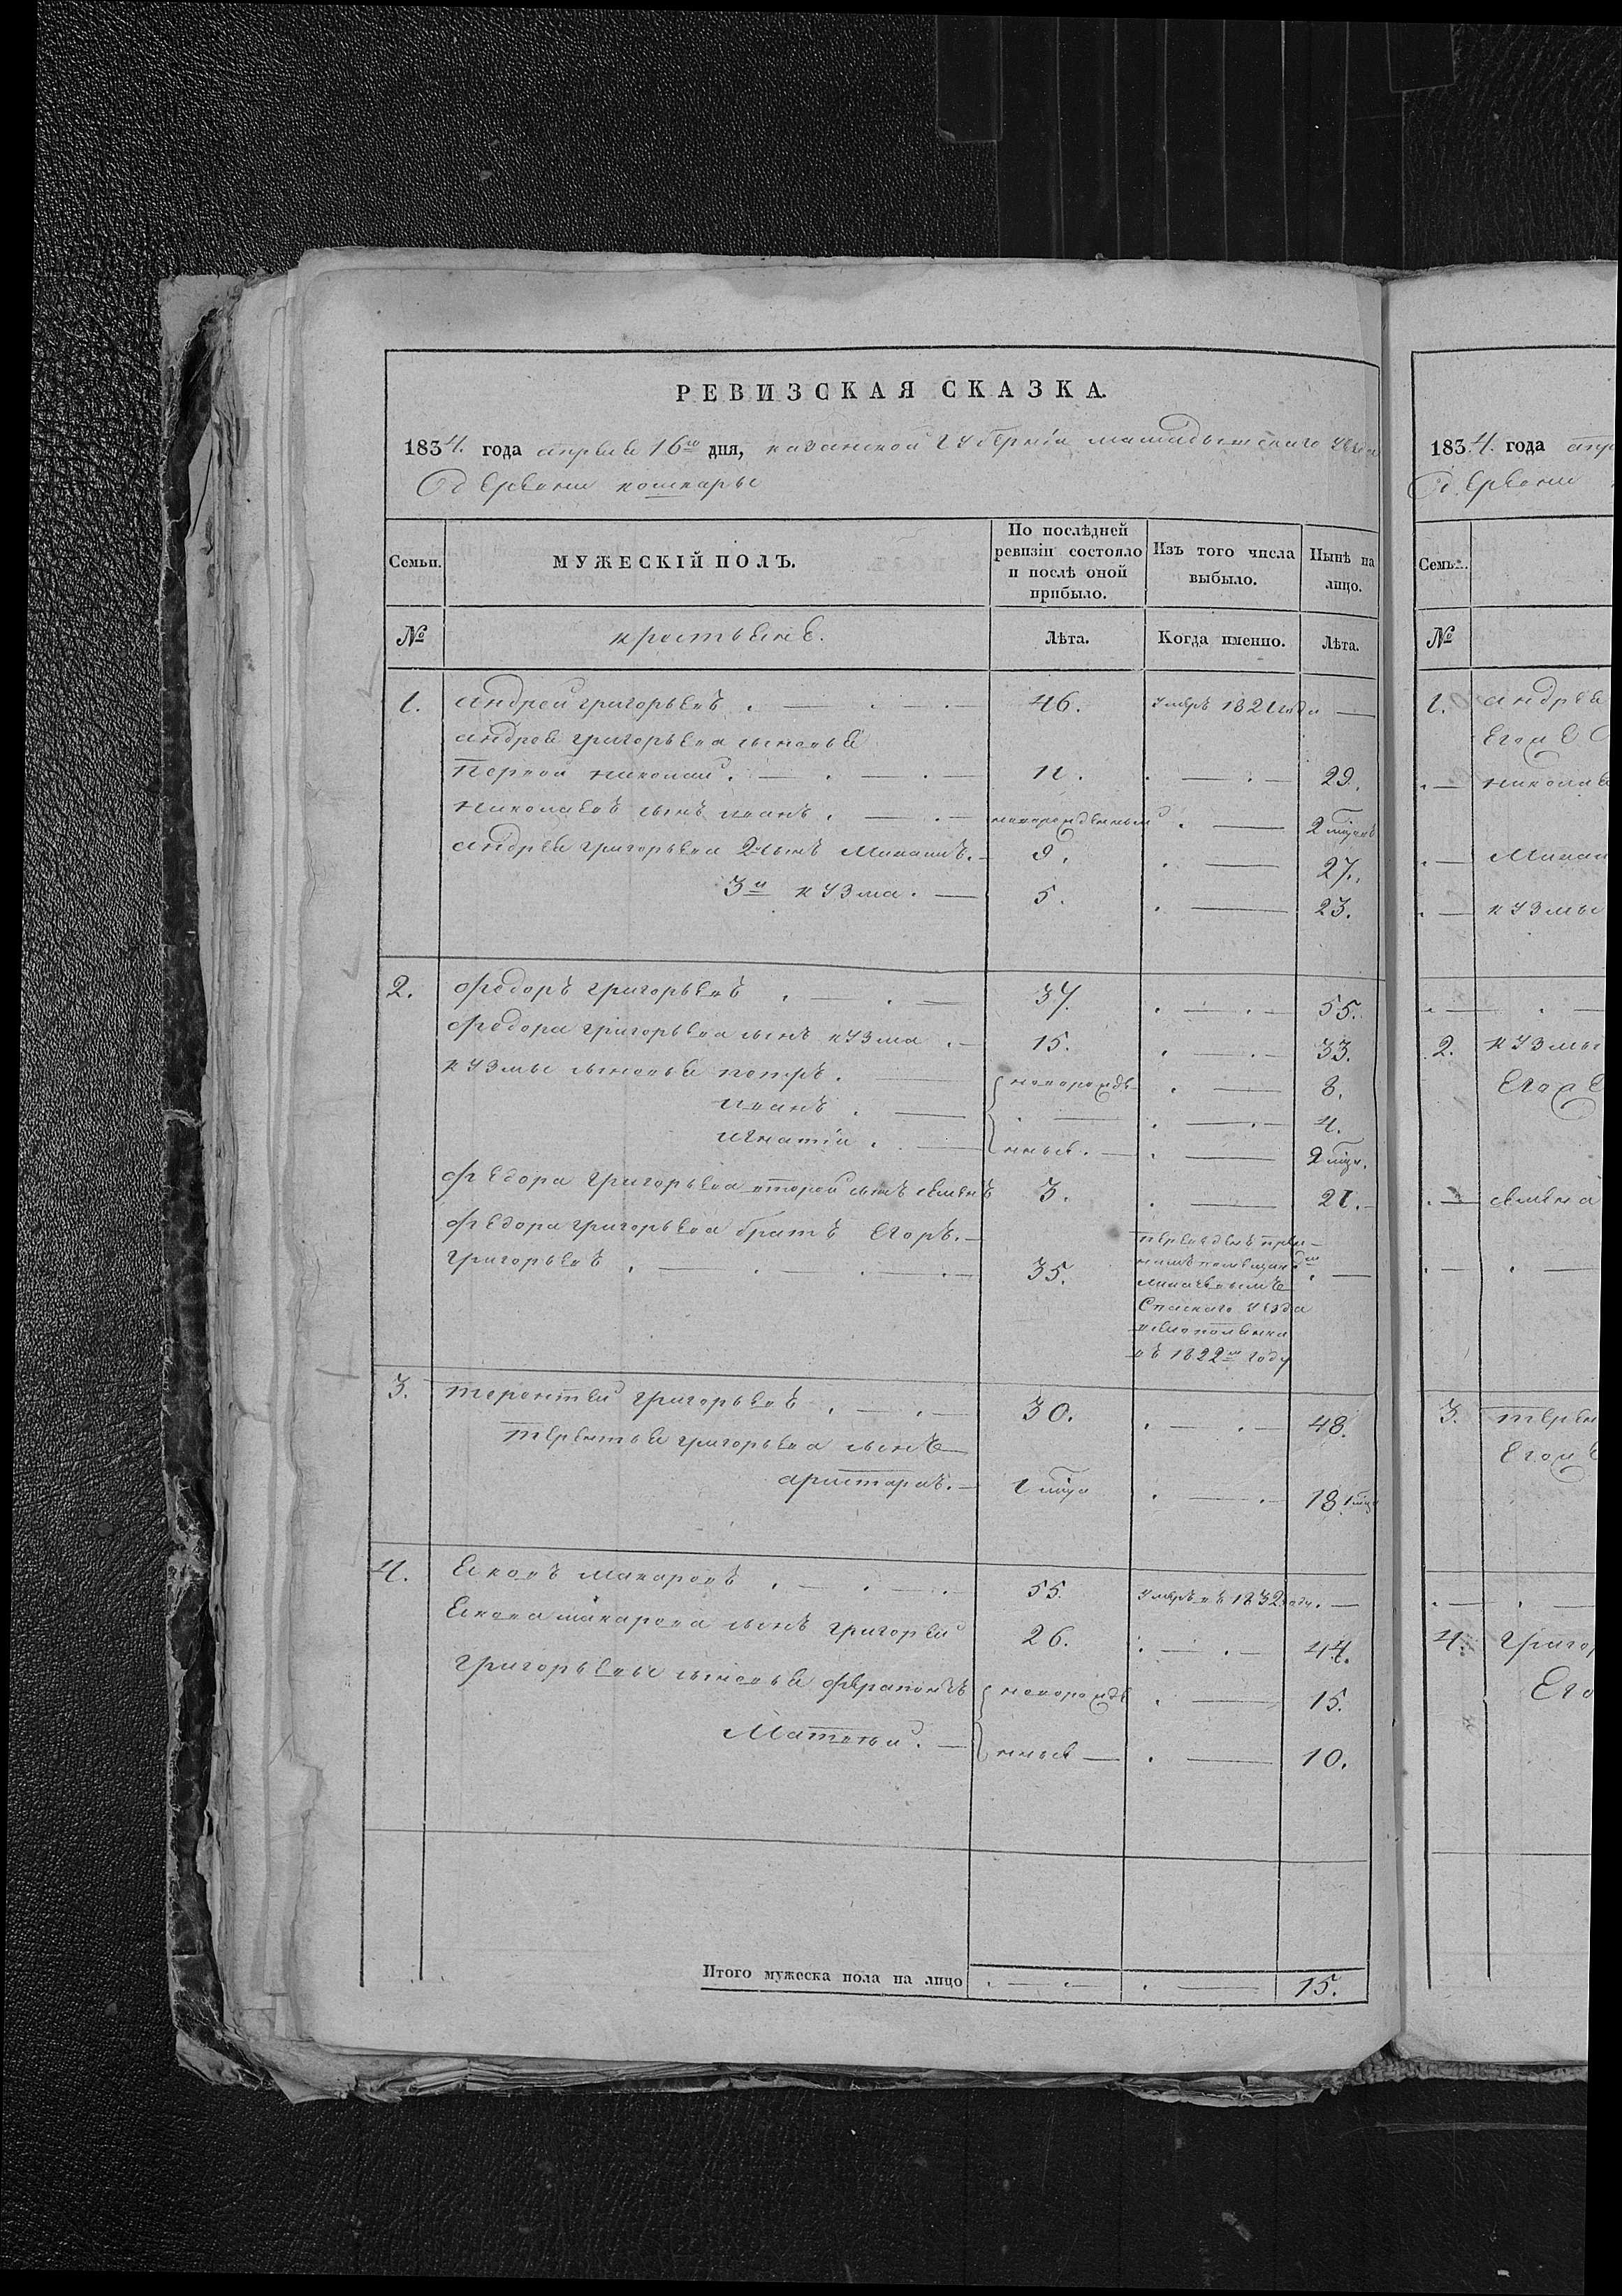 РЕВИЗСКАЯ СКАЗКА.
1834. года апреля 16го дня, казанской губерніи мамадышскаго уезда
деревни кошкары
Семьи.
МУЖЕСКІЙ ПОЛЪ.
По послѣдней ревизіи состояло и послѣ оной прибыло.
Изъ того числа выбыло.
Нынѣ на лицо.
№ крестьяне. Лѣта. Когда именно. Лѣта.
1. андрей григорьевъ . — . — . — 46. умеръ 1821 года —
андрея григорьева сыновья
первой николай . — . — . — 11. . — . — 29.
николаевъ сынъ иванъ . — . — новорожденный . — 2 месецовъ
андрея григорьева 2й сынъ . — 9. . — 27.
3й кузма . — 5. . — 23.
2. федоръ григорьевъ . — . — 37. . — . — 55.
федора григорьева сынъ кузма . — 15. . — . — 33.
кузмы сыновья петръ . — новорожде . — 8.
иванъ . — . — . — . — 4.
игнатіи . — нныя . — . — 2 мец.
федора григорьева второй сынъ семенъ 3. . — 21. —
федора григорьева братъ егоръ. —
григорьевъ . — . — . — . — 35. . —
переведенъ
Спаскаго уезда
въ 1822м году
3. терентей григорьевъ . — . — 30. . — . — 48.
терентья григорьева сынъ —
аристархъ. — 1 меца . — . — 18.
4. Яковъ макаровъ . — . — . 55. умеръ въ 1832 году. —
Якова макарова сынъ григорей 26. . — . — 44.
григорьевы сыновья ферапонтъ новорожде . — 15.
Матвеи . — нныя — . — 10.
Итого мужеска пола на лицо . — . — . — 15.
1834. года апр
деревни
Семьи.
№
1. андрея
Его
. — николая
. —
. — кузмы
. — . —
2. кузмы
Его
. — семена
. — . —
3. терен
Его
. — . —
4. григор
Его